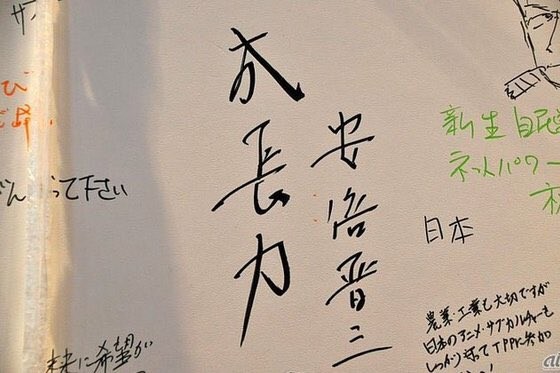 成長力
安倍晋三
って下さい
新生自民
ネットパワー
日本
農業・工業も大切ですが
日本のアニメ・サブカルチャーも
しっかり守ってTPPに参加
未来に希望が